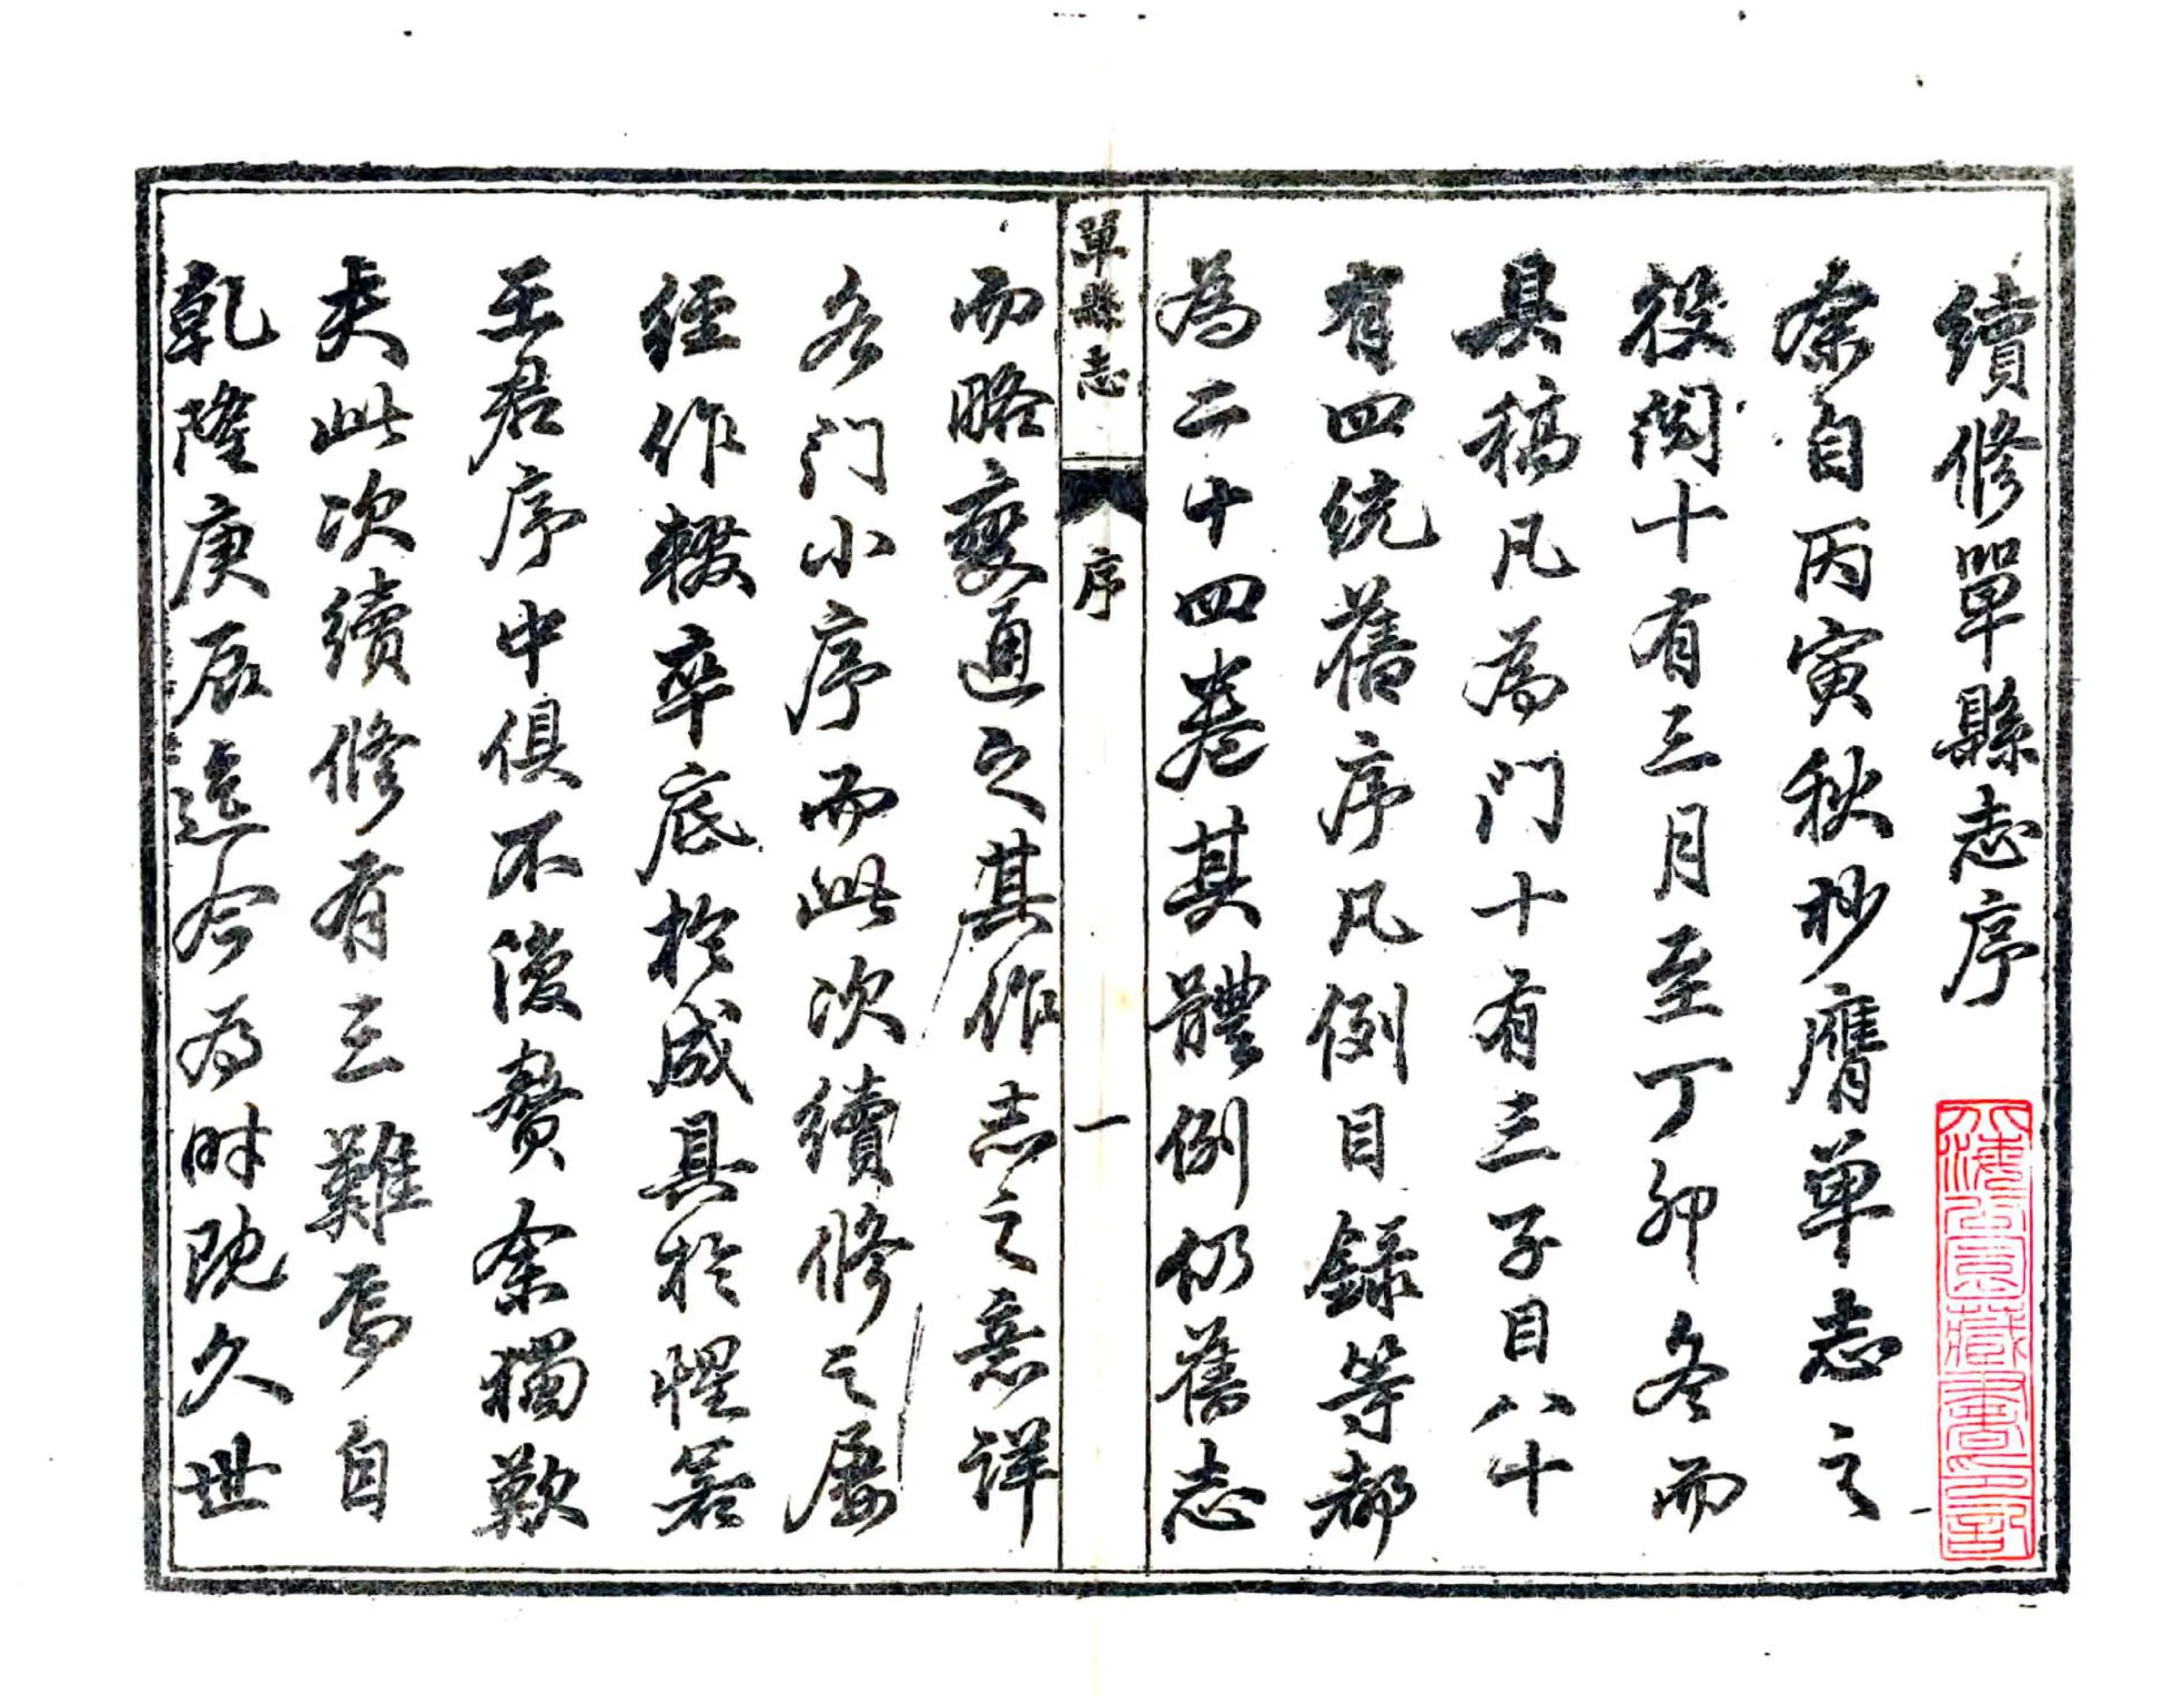 續修單縣志序
余自丙寅秋杪膺单志之
役閱十有三月至丁卯冬而
具稿凡為門十有三子目八十
有四統舊序凡例目録等都
為二十四卷其體例仍舊志
單縣志
序
一
而略變通之其作志之意詳
各门小序而此次續修之屡
經作輟卒底於成具於惺茖
王君序中俱不復贅余獨歎
夫此次續修有三難焉自
乾隆庚辰迄今为时既久世